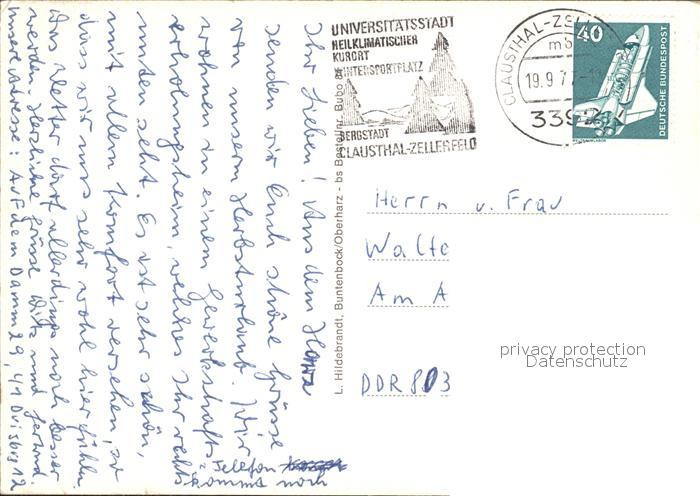 Ihr Lieben! Aus dem Harz
senden wir Euch schöne Grüsse
von unserm Herbsturlaub. Wir
wohnen in einem Gewerkschafts-
erholungsheim, welches Ihr rechts
unten seht. Es ist sehr schön,
mit allem Komfort versehen, so
dass wir uns sehr wohl hier fühlen.
Das Wetter dürft allerdings noch besser
werden. Herzliche Grüsse und
unsere Adresse: Auf dem Damm 29, 41 Duisburg 12
Telefon
kommt noch
UNIVERSITÄTSSTADT
HEILKLIMATISCHER
KURORT
WINTERSPORTPLATZ
BERGSTADT
CLAUSTHAL-ZELLERFELD
CLAUSTHAL-ZELL
mb
19.9.77
3392
40
DEUTSCHE BUNDESPOST
L. Hildebrandt, Buntenbock/Oberharz - bs Bestellnr. Bubo
Herrn u. Frau
Walte
Am A
DDR 803
privacy protection
Datenschutz